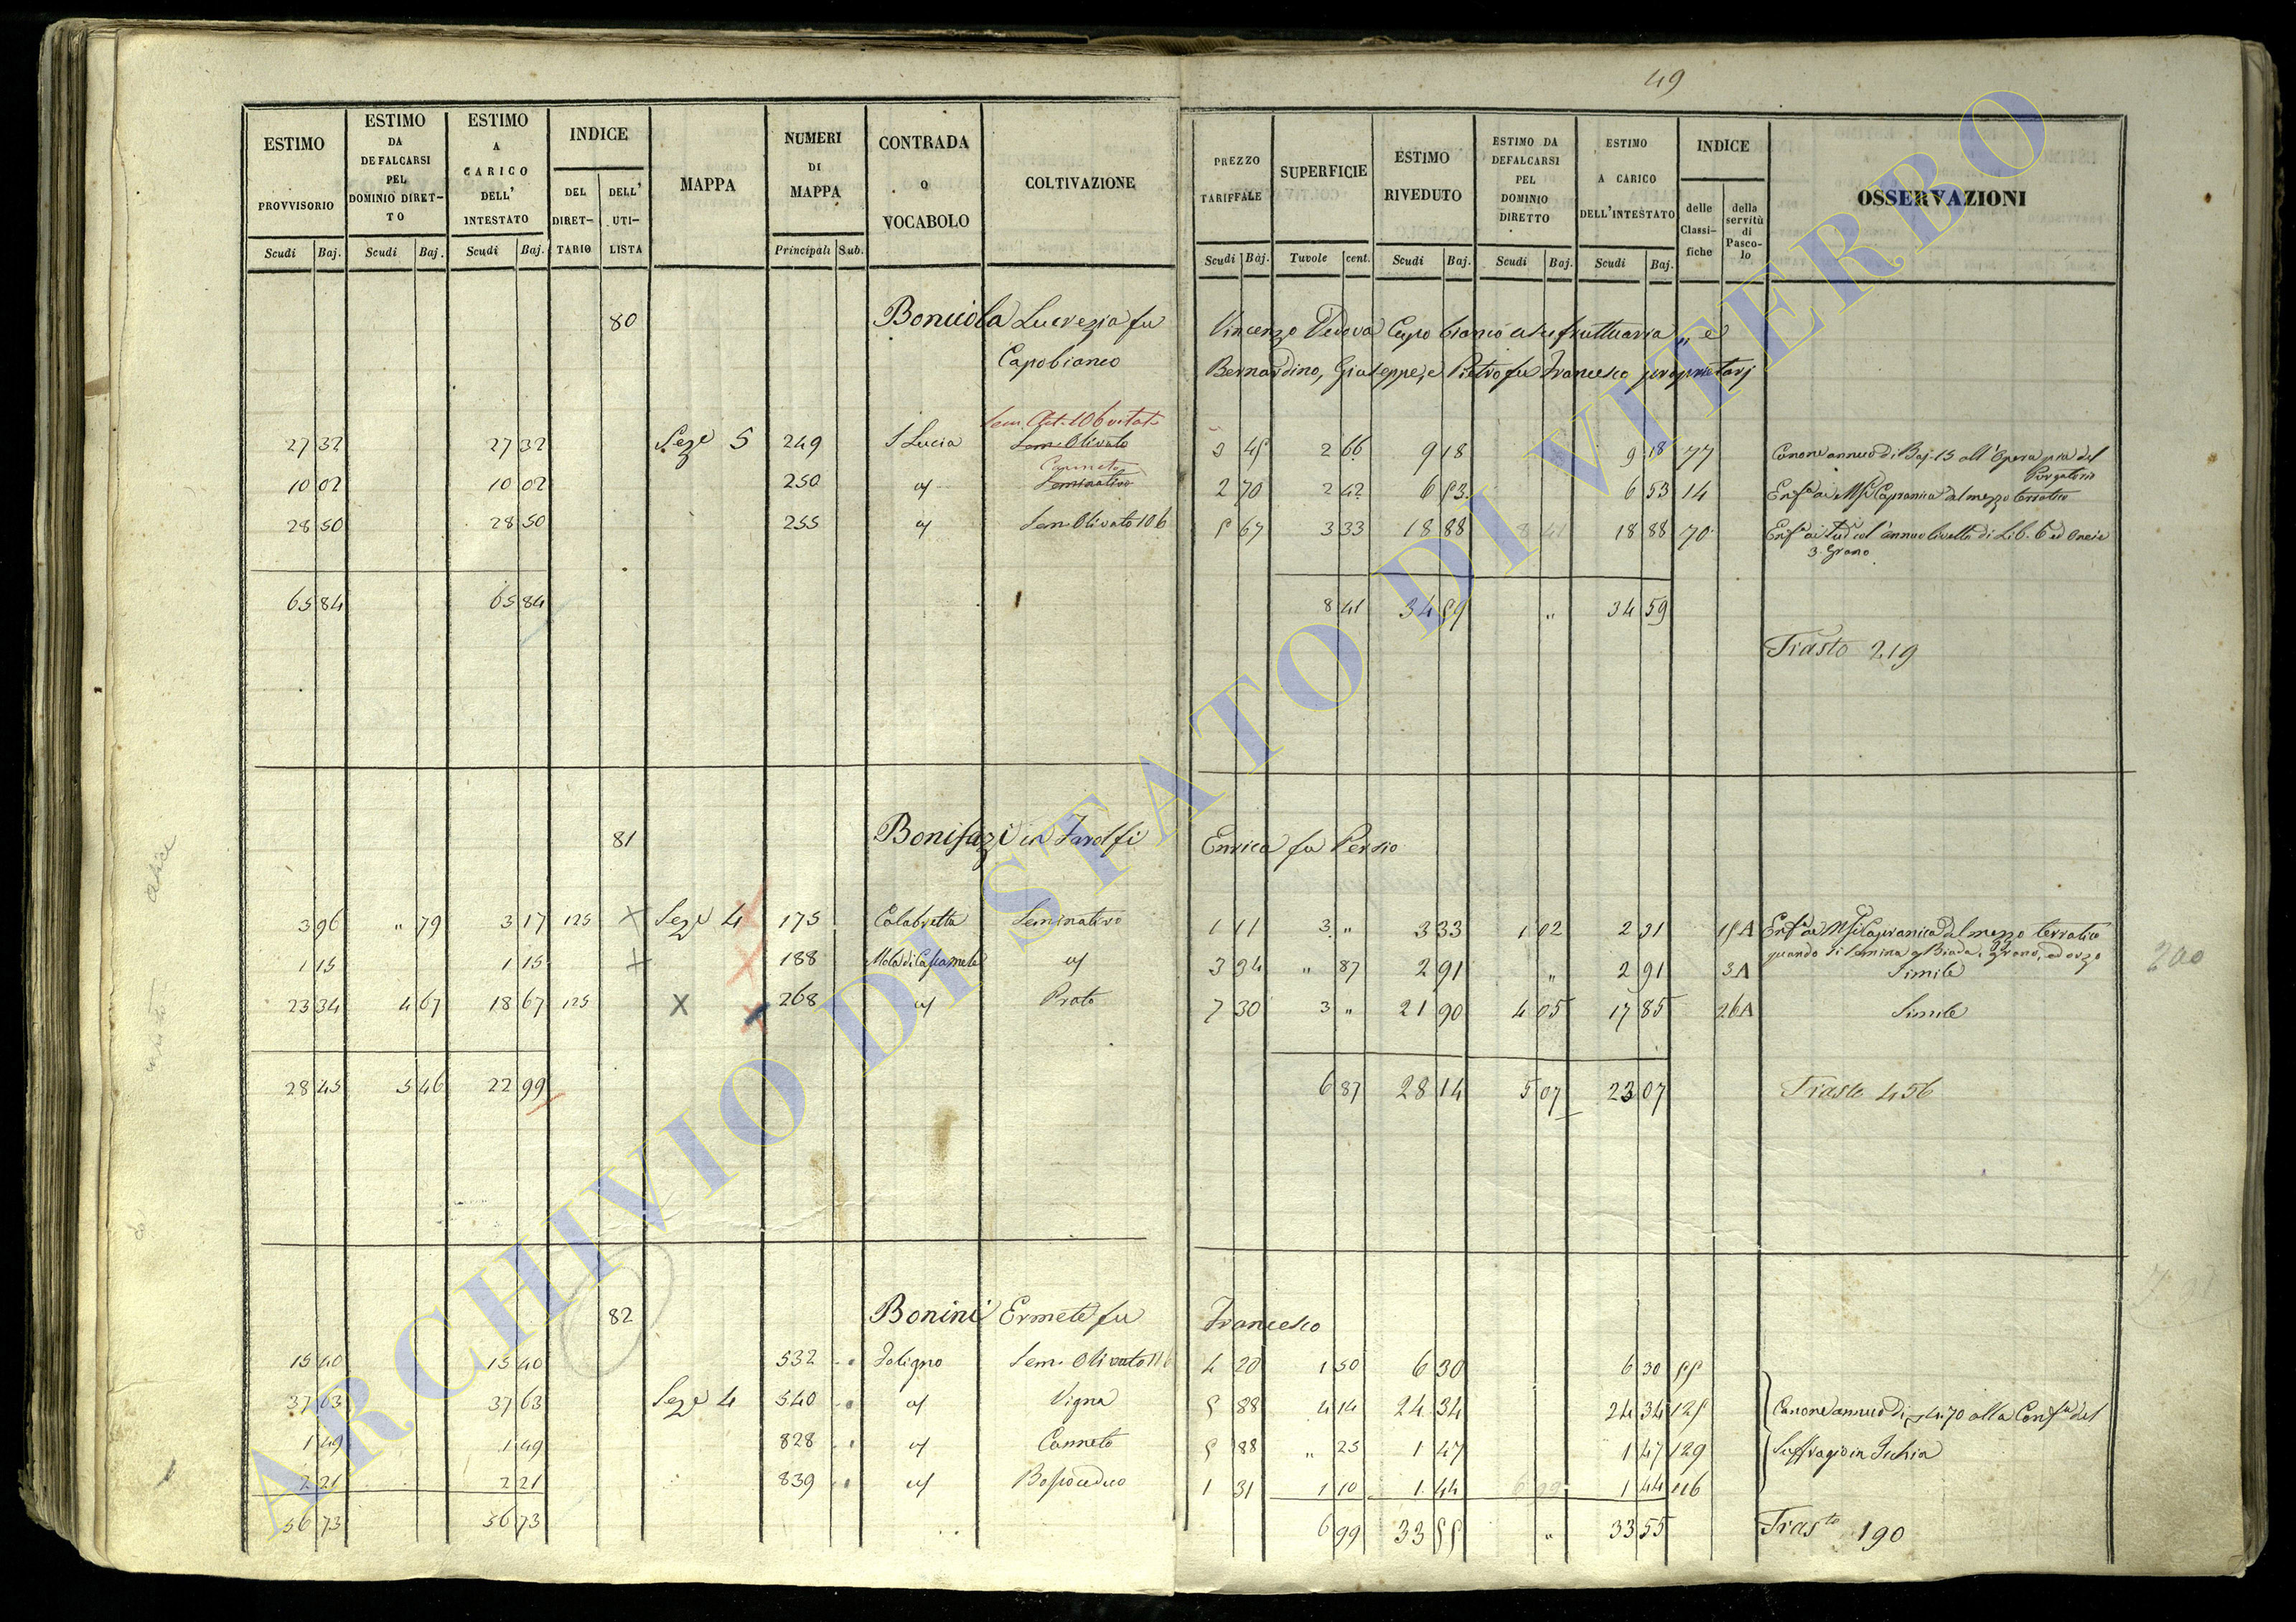 49
ESTIMO PROVVISORIO
ESTIMO DA DEFALCARSI PEL DOMINIO DIRETTO
ESTIMO A CARICO DELL' INTESTATO
INDICE
DEL DIRETTARIO
DELL' UTILISTA
MAPPA
NUMERI DI MAPPA
CONTRADA O VOCABOLO
COLTIVAZIONE
PREZZO TARIFFALE
SUPERFICIE
ESTIMO RIVEDUTO
ESTIMO DA DEFALCARSI PEL DOMINIO DIRETTO
ESTIMO A CARICO DELL'INTESTATO
INDICE
delle Classifiche
della servitù di Pascolo
OSSERVAZIONI
Scudi Baj. Scudi Baj. Scudi Baj. Principali Sub. Scudi Baj. Tavole cent. Scudi Baj. Scudi Baj. Scudi Baj.
80 Lucrezia fu Vincenzo Vedova Capobianco usufruttuaria „ e
Capobianco Bernardino, Giuseppe, e Pietro fu Francesco proprietarj
27 32 27 32 Seze 5 249 S Lucia Sem. Olivato 3 45 2 66 9 18 9 18 77 Canone annuo di Baj. 15 all'Opera pia del Purgatorio
10 02 10 02 250 Canneto Seminativo 2 70 2 42 6 53 6 53 14
28 50 28 50 255 Sem. Olivato 106 5 67 3 33 18 88 18 88 70
3. Grano
65 84 65 84 8 41 34 59 „ 34 59
Trasto 219
81 Bonifazi in Farolfi Enrica fu Persio
3 96 „ 79 3 17 125 Seze 4 175 Calabretta Seminativo 1 11 3 „ 3 33 1 02 2 31 15A
quando si semina Biada, grano, ed orzo
1 15 1 15 188 3 34 „ 87 2 91 „ 2 91 3A Simile
23 34 4 67 18 67 125 X 268 Prato 7 30 3 „ 21 90 4 05 17 85 26A Simile
28 45 5 46 22 99 6 87 28 14 5 07 23 07 Trasto 456
200
82 Bonini Ermete fu Francesco
15 40 15 40 532 Foligno Sem. Olivato 116 4 20 1 50 6 30 6 30 55
37 63 37 63 Seze 4 540 Vigna 5 88 4 14 24 34 24 34 125 Canone annuo di 4.70 alla Conf. del
1 49 1 49 828 Canneto 5 88 „ 25 1 47 1 47 129 Suffragio in Ischia
2 21 2 21 839 Bosco ceduo 1 31 1 10 1 44 1 44 116
56 73 56 73 6 99 33 55 „ 33 55 Trasto 190
ARCHIVIO DI STATO DI VITERBO